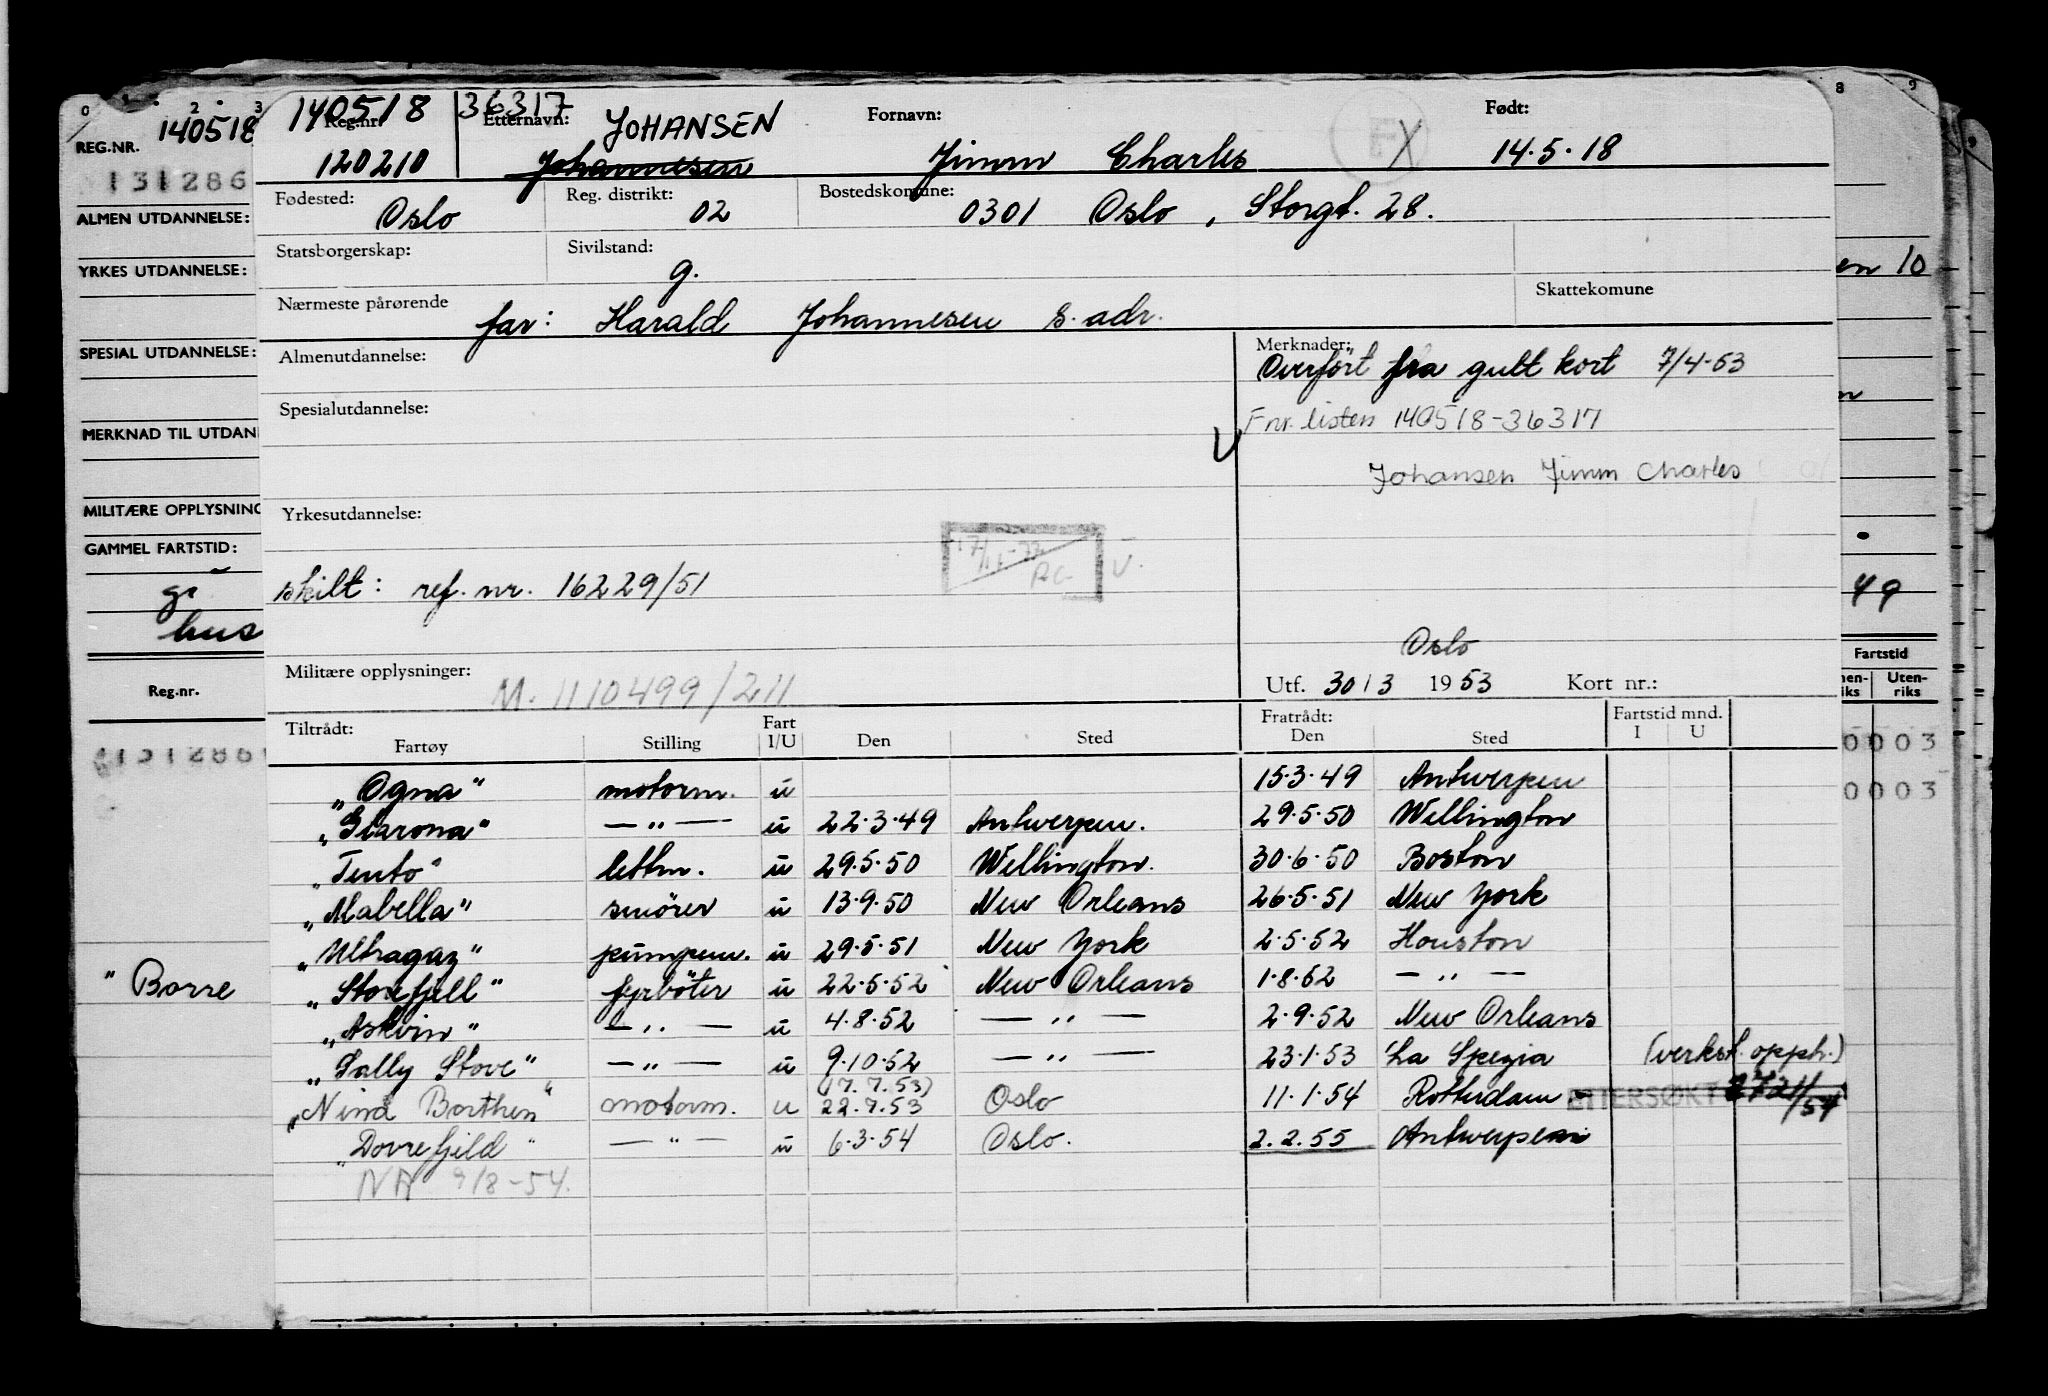 0 1 2 3 8 9
REG.NR. 140518
131286
ALMEN UTDANNELSE:
YRKES UTDANNELSE:
SPESIAL UTDANNELSE:
MERKNAD TIL UTDAN
MILITÆRE OPPLYSNING
GAMMEL FARTSTID:
hus
Reg.nr.
131286
"Borre
140518 36317
Reg.nr. Etternavn: JOHANSEN Fornavn: Født:
120210 Johannesen Jimm Charles F X 14.5.18
Fødested: Oslo Reg. distrikt: 02 Bostedskomune: 0301 Oslo, Storgt. 28.
Statsborgerskap: Sivilstand: g.
Nærmeste pårørende far: Harald Johannesen s. adr. Skattekomune
Almenutdannelse: Merknader:
Overført fra gult kort 7/4-53
Spesialutdannelse: Fnr. listen 140518-36317
V
Johansen Jimm Charles
Yrkesutdannelse:
skilt: ref. nr. 16229/51
V.
Oslo
Militære opplysninger: M. 1110499/211 Utf. 30/3 1953 Kort nr.:
Tiltrådt: Fart Fratrådt: Fartstid mnd.
Fartøy Stilling I/U Den Sted Den Sted I U
"Ogna" motorm. u 15.3.49 Antwerpen
"Girona" —"— u 22.3.49 Antwerpen. 29.5.50 Wellington
"Tento" lettm. u 29.5.50 Wellington. 30.6.50 Boston
"Mabella" smörer u 13.9.50 New Orleans 26.5.51 New York
"Ultragaz" pumpem. u 29.5.51 New York 2.5.52 Houston
"Storefjell" fyrböter u 22.5.52 New Orleans 1.8.52 —"—
"Askvin" —"— u 4.8.52 —"— 2.9.52 New Orleans
"Sally Stove" —"— u 9.10.52 —"— 23.1.53 La Spezia (verkst. opph.)
(17.7.53)
"Nina Borthen" motorm. u 22.7.53 Oslo 11.1.54 Rotterdam ETTERSØKT
"Dovrefjeld" —"— u 6.3.54 Oslo. 2.2.55 Antwerpen
NA 9/8-54.
en 10
49
Fartstid
nen-riks Uten-riks
0003
0003